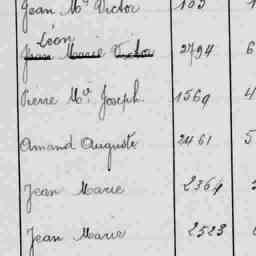 Jean Mie Victor 103
Léon
Jean Marie Victor 2794 6
Pierre Mie Joseph 1569 4
Amand Auguste 2461 5
Jean Marie 2364
Jean Marie 2523